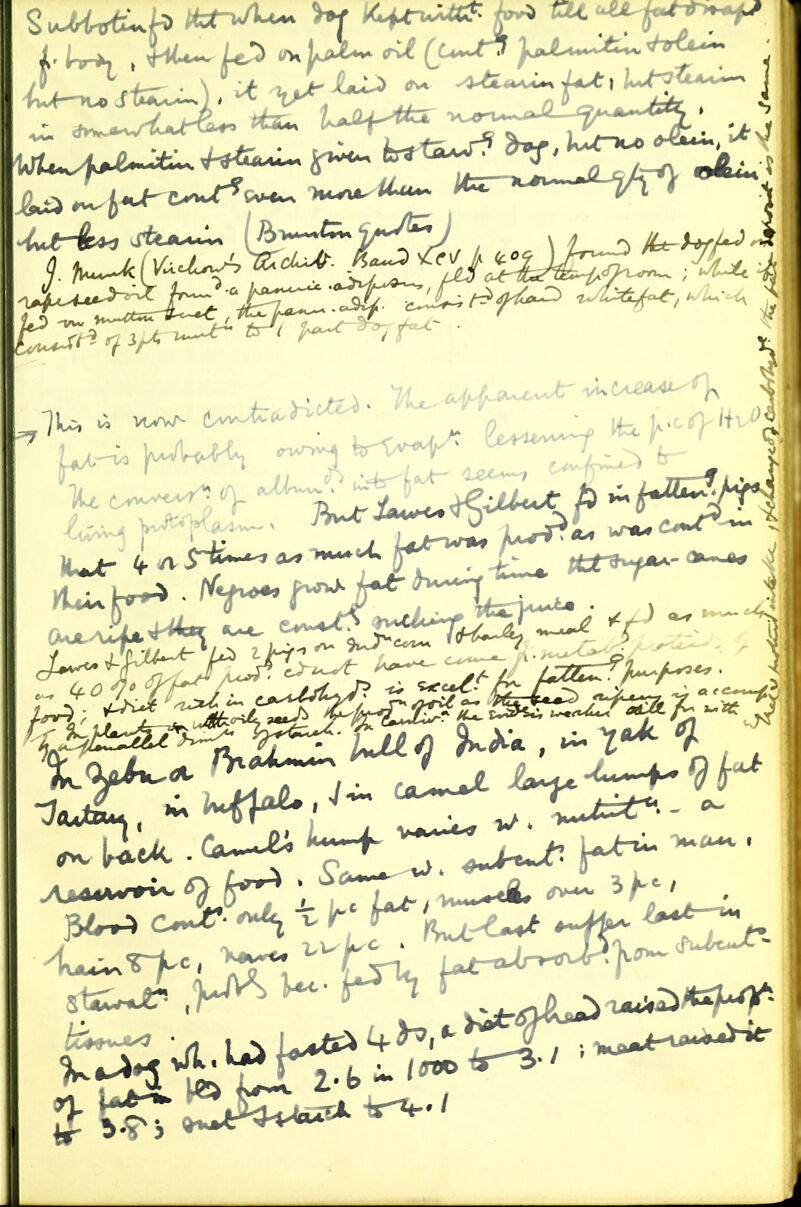 Subbotin fd tht when dog kept witht. food till all fat disapd
f. body, & then fed on palm oil (contg palmitin & olein
but no stearin), it yet laid on stearin fat, but stearin
in somewhat less than half the normal quantity.
When palmitin & stearin given to starvg dog, but no olein, it
laid on fat contg even more than the normal qty of olein
but less stearin (Brunton quotes)
J. Munk (Virchow's Archiv. Band XCV p 409) found tht dog fed on
rapeseed oil formd a pannic. adiposus, fld at the temp of room; while if
fed on mutton suet, the pann. adip. consistd of hard white fat, which
consistd of 3 pts muttn to 1 part dog fat.
→ This is now contradicted. The apparent increase of
fat is probably owing to evapn. lessening the p.c of H2O
The conversn. of albumd. into fat seems confined to
living protoplasm. But Lawes & Gilbert fd in fatteng. pigs
that 4 or 5 times as much fat was prodd as was contd in
their food. Negroes grow fat during time tht sugar-canes
are ripe & they are constly sucking the juice.
Lawes & Gilbert fed 2 pigs on Indn corn & barley meal & fd as much
as 40 % of fat prodd cd not have come f. metabd proteid of
food; & diet rich in carbohyds is excelt. for fatteng purposes.
In plants with oily seeds the prodn of oil as the seed ripens is accomp
by a parallel dimin of starch. In carniv. the evid is weaker still for with
In Zebu or Brahmin bull of India, in yak of
Tartary, in buffalo, & in camel large lumps of fat
on back. Camel's hump varies w. nutritn. - a
reservoir of food. Same w. subcuts. fat in man.
Blood conts. only ½ pc fat, muscles over 3 pc,
brain 8 pc, nerves 22 pc. But last suffer last in
starvatn, probly bec. fed by fat absorbd. from subcuts
tissues.
In a dog wh. had fasted 4 ds, a diet of bread raised the propn.
of fat in bld from 2.6 in 1000 to 3.1; meat raised it
to 3.8; suet & starch to 4.1
the fat deposit is the same.